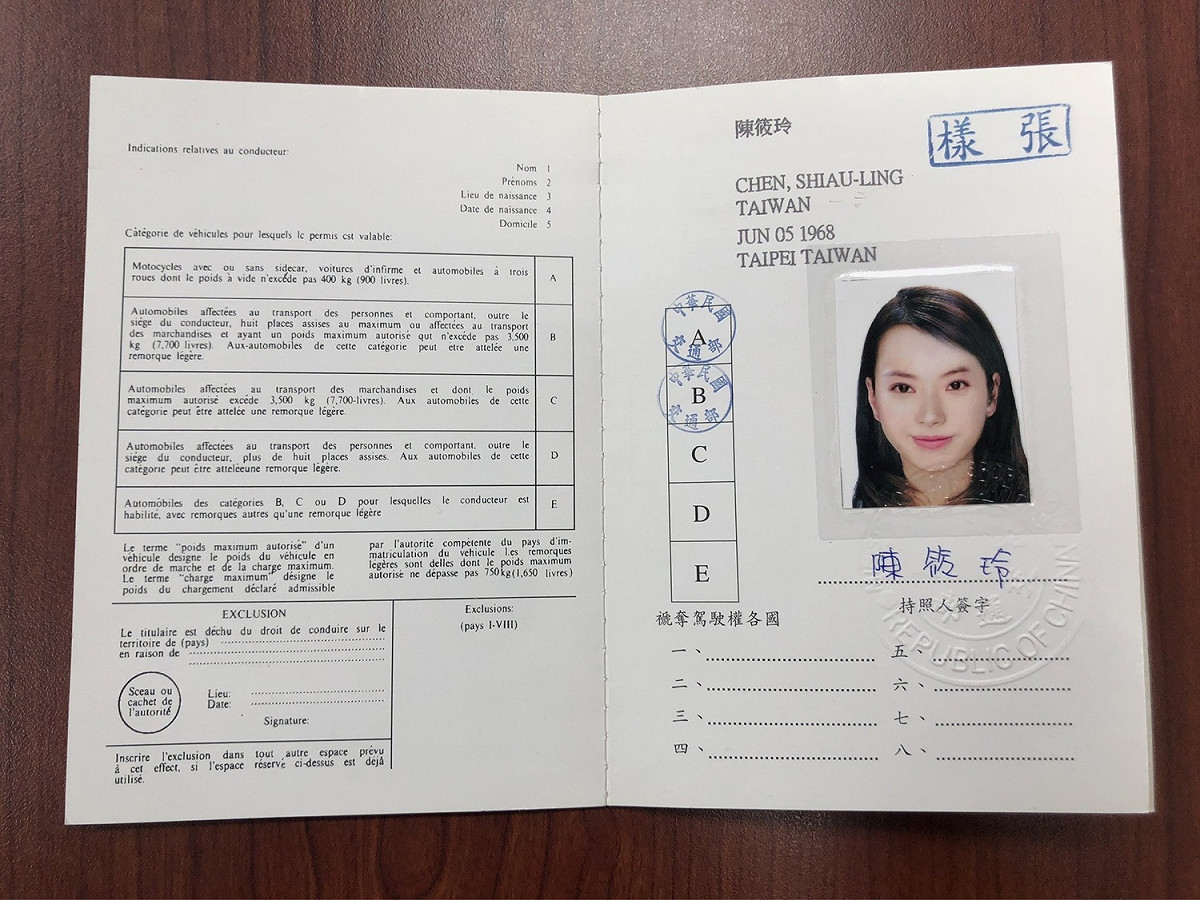 Indications relatives au conducteur:
Nom 1
Prénoms 2
Lieu de naissance 3
Date de naissance 4
Domicile 5
Câtégorie de véhicules pour lesquels lc permis cst valable:
Motocycles avec ou sans sidecar, voitures d'infirme et automobiles à trois
roues dont le poids à vide n'excéde pas 400 kg (900 livres).
A
Automobiles affectées au transport des personnes et comportant, outre le
siége du conducteur, huit places assises au maximum ou affectées au transport
des marchandises et ayant un poids maximum autorisé qut n'excéde pas 3,500
kg (7,700 livres). Aux-automobiles de cette catégorie peut etre attelée une
remorque légère.
B
Automobiles affectées au transport des marchandises et dont le poids
maximum autorisé excéde 3,500 kg (7,700-livres). Aux automobiles de cette
catégorie peut être attelée une remorque légère.
C
Automobiles affectées au transport des personnes et comportant, outre le
siége du conducteur, plus de huit places assises. Aux automobiles de cette
catégorie peut être atteleeune remorque légère.
D
Automobiles des catégories B, C ou D pour lesquelles le conducteur est
habilité, avec remorques autres qu'une remorque légére
E
Le terme "poids maximum autorisé" d'un
véhicule designe le poids du véhicule en
ordre de marche et de la charge maximum.
Le terme "charge maximum" désigne le
poids du chargement déclaré admissible
par l'autorité compétente du pays d'im-
matriculation du véhicule Les remorques
légères sont delles dont le poids maximum
autorisé ne dépasse pas 750kg(1,650 livres)
EXCLUSION
Le titulaire est déchu du droit de conduire sur le
territoire de (pays)
en raison de
Sceau ou
cachet de
l'autorité
Lieu:
Date:
Signature:
Inscrire l'exclusion dans tout autre espace prévu
à cet effect, si l'espace réservé ci-dessus est déjà
utilisé.
Exclusions:
(pays I-VIII)
陳筱玲
樣張
CHEN, SHIAU-LING
TAIWAN
JUN 05 1968
TAIPEI TAIWAN
中華民國
交通部
A
中華民國
交通部
B
C
D
E
陳筱玲
持照人簽字
REPUBLIC OF CHINA
褫奪駕駛權各國
一、
二、
三、
四、
五、
六、
七、
八、